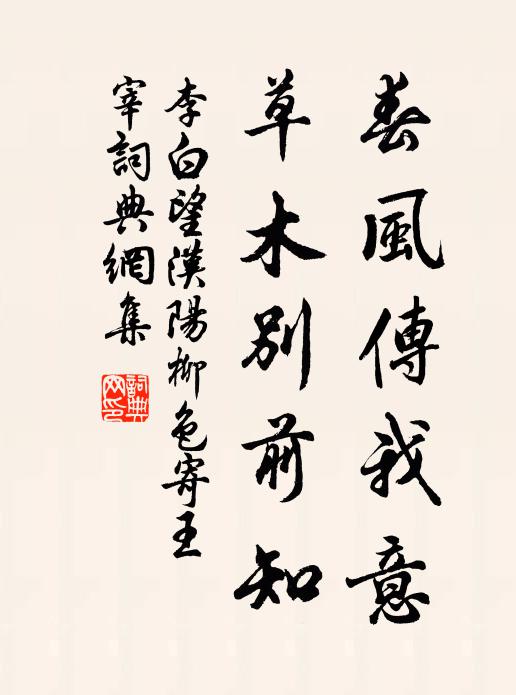 春風傳我意
草木別前知
李白望漢陽柳色寄王
宰詞典網集
詞典
网印